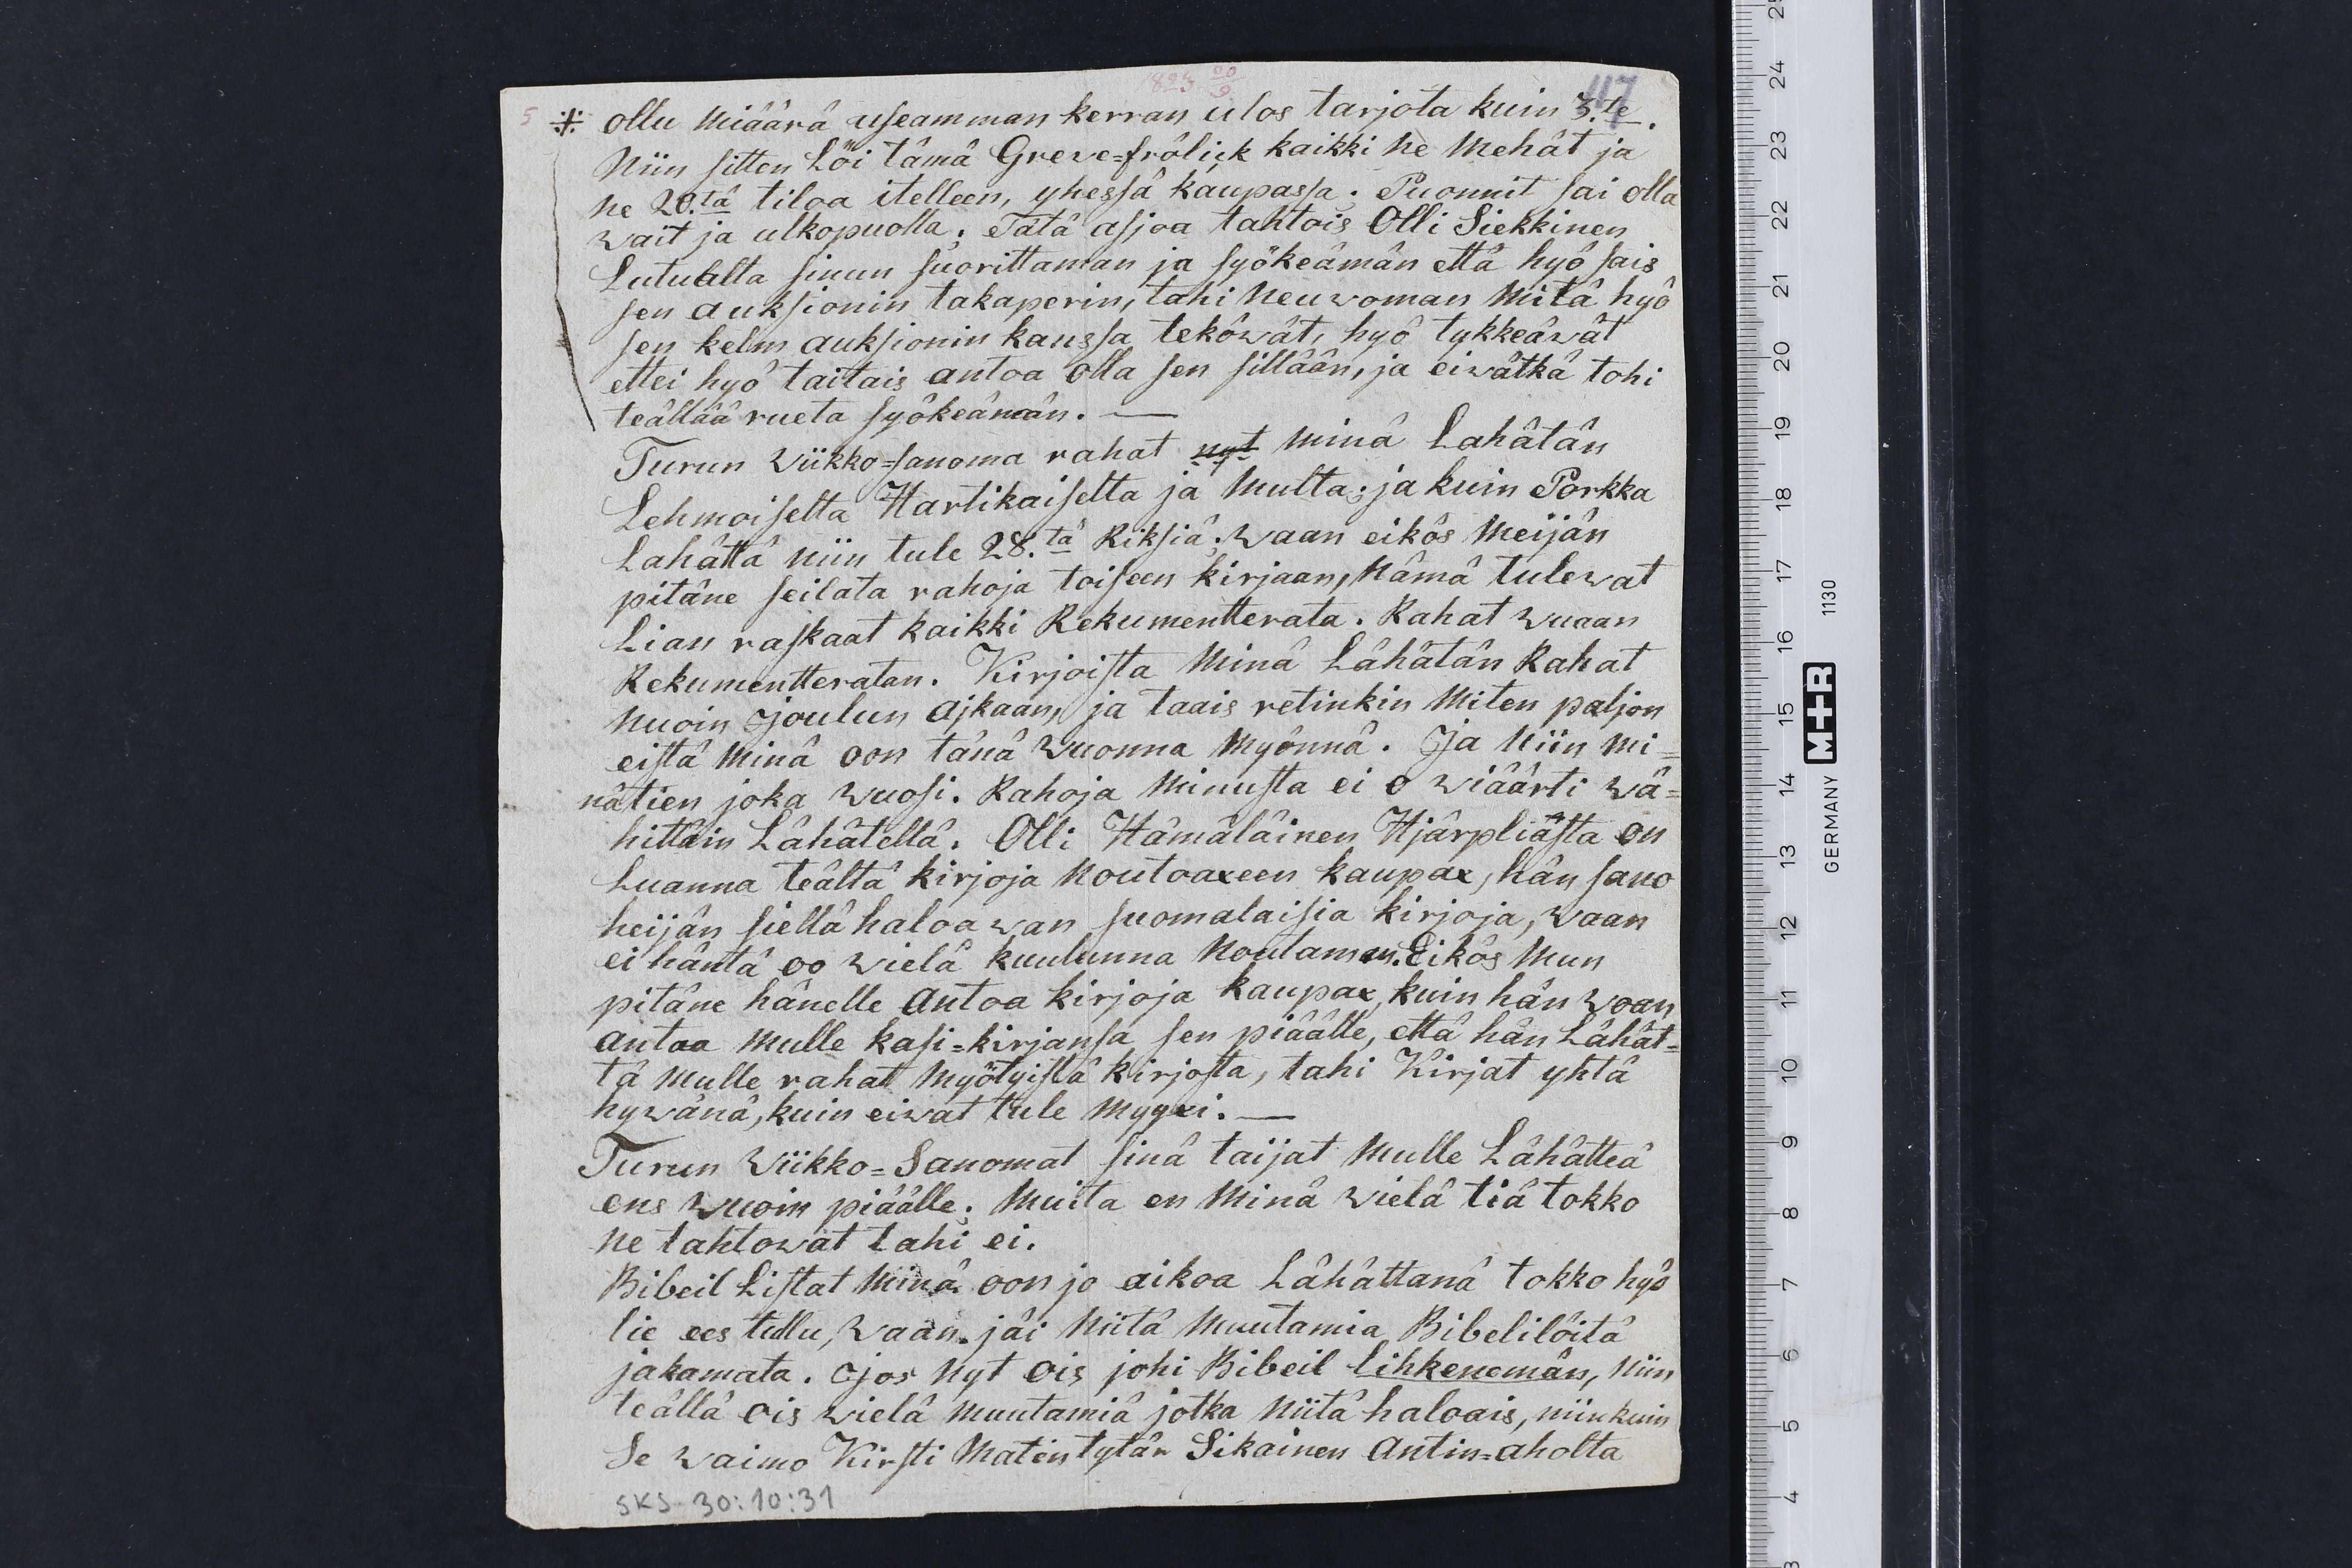 1823 20/9
5
117
⁜ ollu Määrä useamman kerran ulos tarjota kuin 3.te.
Niin sitten Löi tämä Greve=frölick kaikki ne Mehät ja
ne 20.tä tiloa itelleen, yhessä kaupassa. Puonnit sai olla
wait ja ulkopuolla. Tätä asjoa tahtois Olli Siekkinen
Lutualta sinun suorittaman ja syökeämän että hyö sais
sen auksionin takaperin, tahi Neuwoman Mitä hyö
sen kelm auksionin kanssa teköwät, hyö tykkeäwät
ettei hyö taitais antoa olla sen sillään, ja eiwätkä tohi
teällää rueta syökeämän. —
Turun Wiikko=sanoma rahat nyt minä Lahätän
Lehmoiselta Hartikaiselta ja Multa; ja kuin Porkka
Lahättä niin tule 28.tä Riksiä. Waan eikös Meijän
pitäne seilata rahoja toiseen kirjaan, Nämä tulewat
Lian raskaat kaikki Rekumentterata. Rahat wuaan
Rekumentteratan. Kirjoista Minä Lähätän Rahat
Nuoin Joulun ajkaan, ja taais retinkin Miten paljon
eistä Minä oon tänä Wuonna Myönnä. Ja Niin mi=
nätien joka Wuosi. Rahoja Minusta ei o wiäärti Wä=
hittäin Lähätellä. Olli Hämäläinen Hjärpliästa on
Luanna teältä kirjoja Noutoaxeen kaupax, hän sano
heijän siellä haloawan suomalaisia kirjoja, Waan
ei häntä oo wielä kuulunna Noutamen. Eikös Mun
pitäne hänelle Antoa kirjoja kaupax, kuin hän Woan
antaa Mulle kasi=kirjansa sen piäälle, että hän Lähät=
tä Mulle rahat Myötyistä kirjosta, tahi Kirjat yhtä
hywänä, kuin eiwat tule Myyxi. —
Turun Wiikko=Sanomat sinä taijat Mulle Lähätteä
ens Wuoin piäälle. Muita en Minä Wielä tiä tokko
Ne tahtowat tahi ei.
Bibeil Listat Minä oon jo aikoa Lähättänä tokko hyö
lie ees tullu, Waan jäi Niitä Muutamia Bibelilöitä
jakamata. Jos Nyt Ois johi Bibeil Lihkenemän, Niin
teällä ois wielä Muutamiä jotka Niitä haloais, niinkuin
Se Waimo Kirsti Matin tytär Sikainen Antin=aholta
SKS 30:10:31
GERMANY M+R 1130
25
24
23
22
21
20
19
18
17
16
15
14
13
12
11
10
9
8
7
6
5
4
3